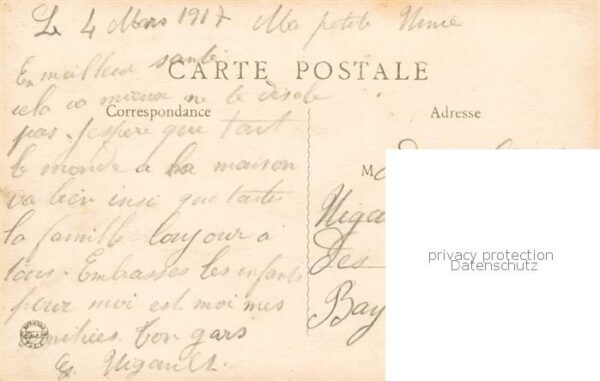 Le 4 Mars 1917 Ma petite Ninie
En meilleur santé
CARTE POSTALE
cela va mieux ne te désole
Correspondance
Adresse
pas. J'espere que tout
le monde a la maison
va bien insi que toute
la famille toujour a
tous. Embrasses les enfants
pour moi est moi mes
amitiées. Ton gars
Nigault.
M
Nigau
Des
Bay
privacy protection
Datenschutz